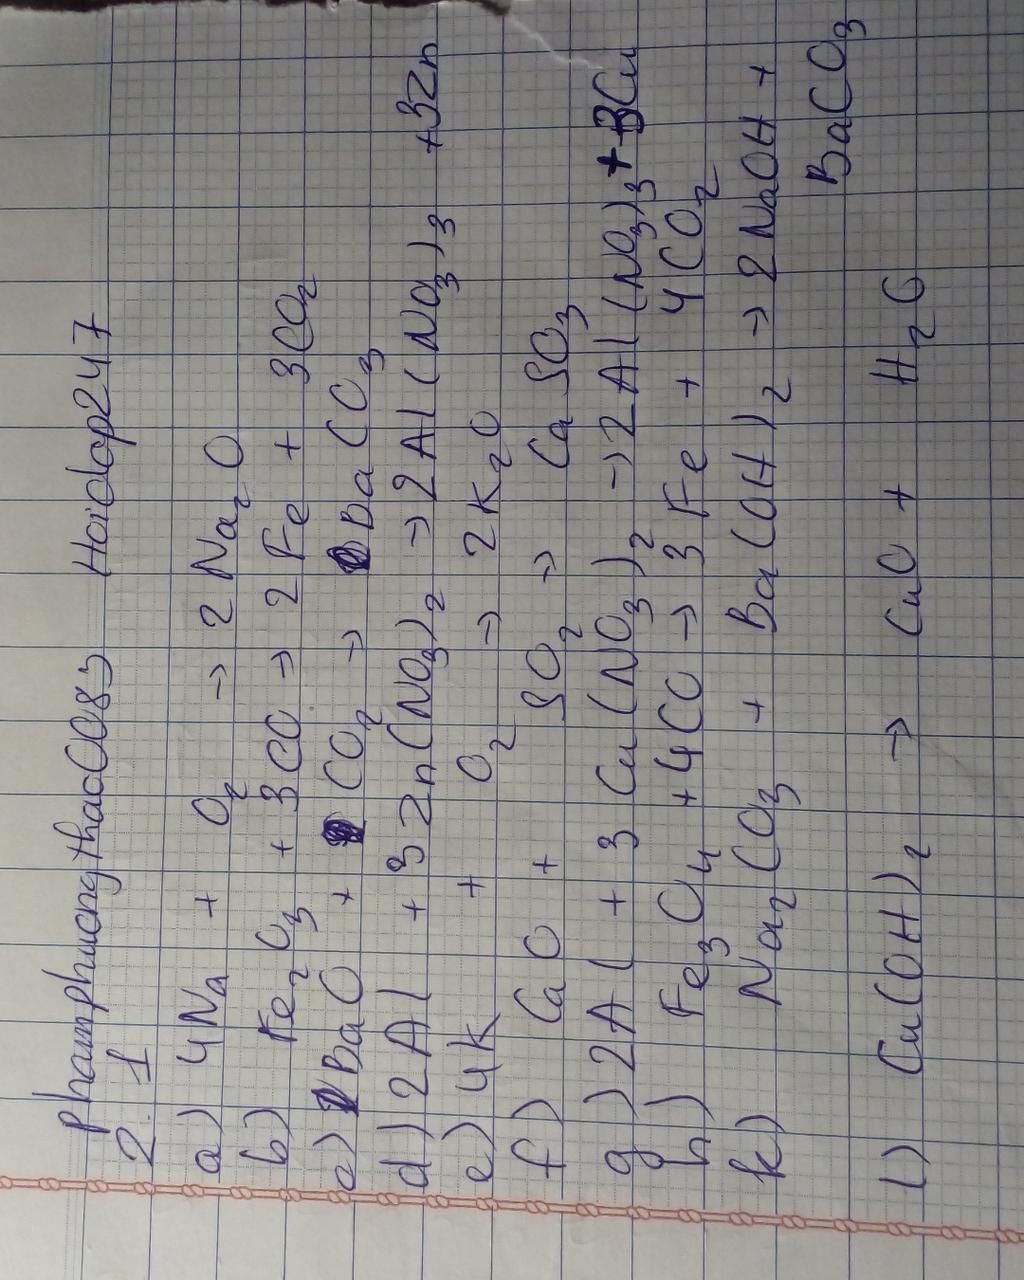 phamphuongthao0083 Hoidap247
2.1
a) 4Na + O2 → 2Na2O
b) Fe2O3 + 3CO → 2Fe + 3CO2
c) BaO + CO2 → BaCO3
d) 2Al + 3Zn(NO3)2 → 2Al(NO3)3 + 3Zn
e) 4K + O2 → 2K2O
f) CaO + SO2 → CaSO3
g) 2Al + 3Cu(NO3)2 → 2Al(NO3)3 + 3Cu
h) Fe3O4 + 4CO → 3Fe + 4CO2
k) Na2CO3 + Ba(OH)2 → 2NaOH +
BaCO3
l) Cu(OH)2 → CuO + H2O